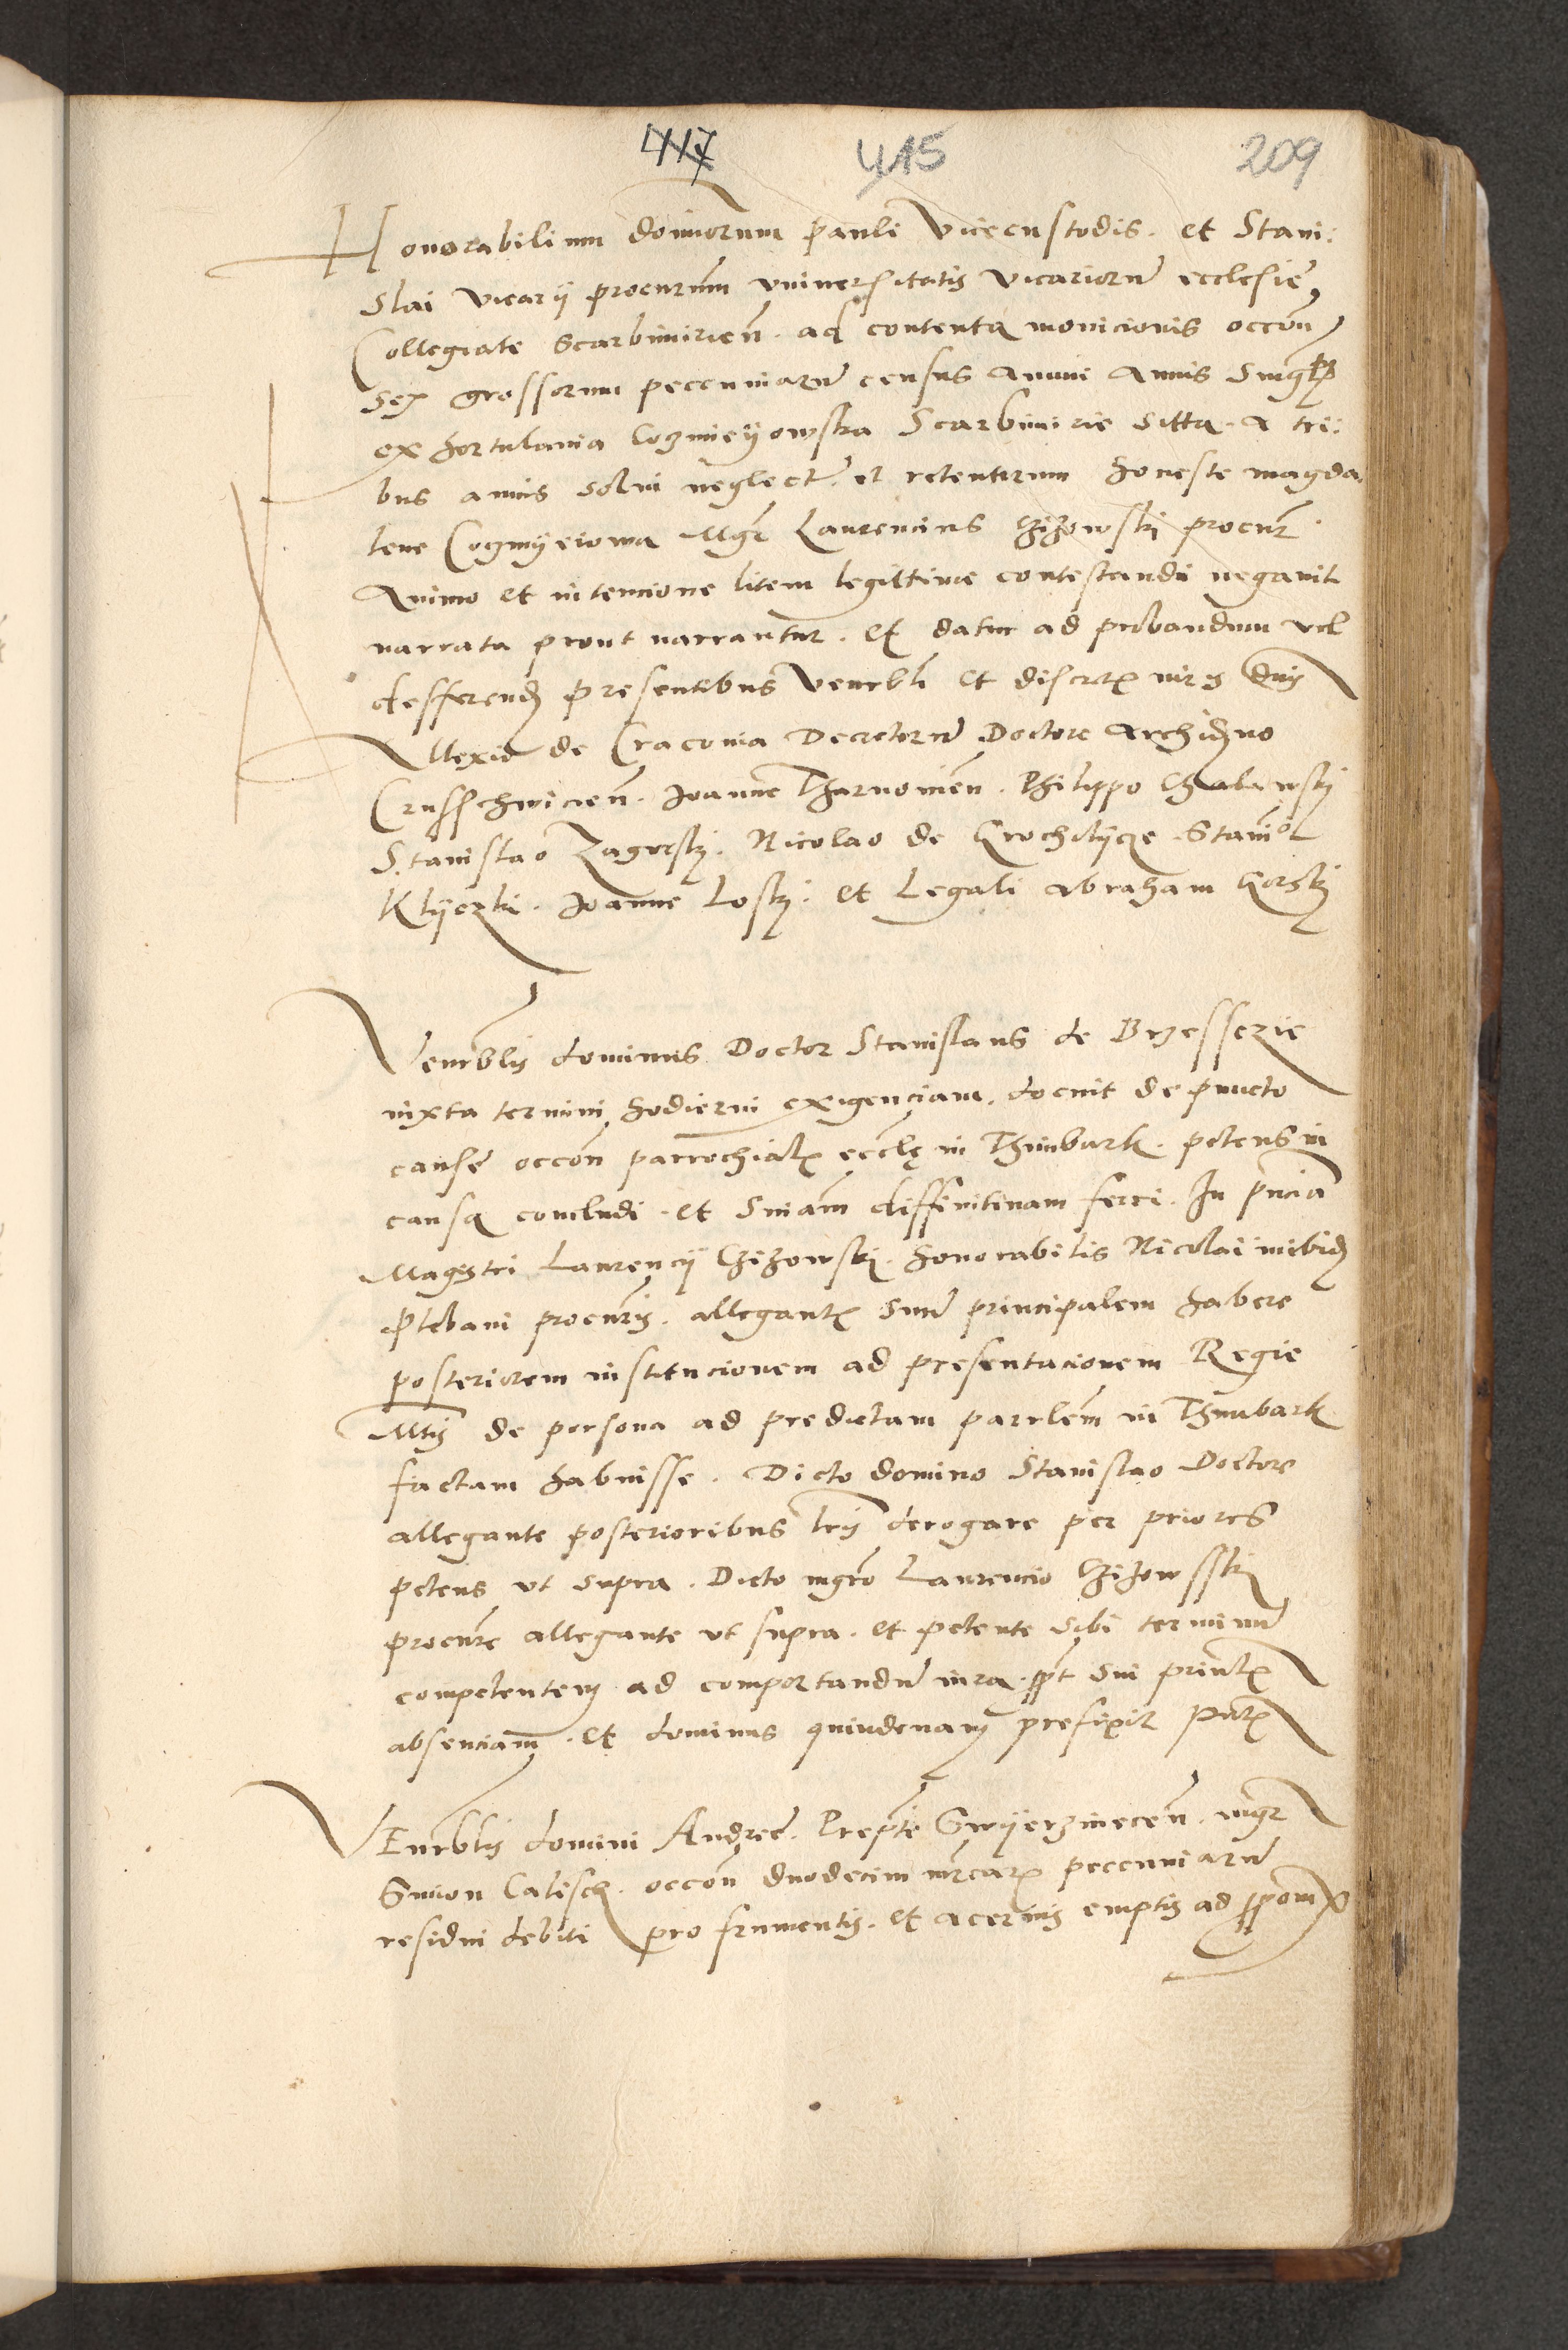 417 415 209
Honorabilium dominorum pauli vicecustodis. et Stani:
slai vicarij procurum vniuersitatis vicariorum ecclesie
Collegiate Scarbimirien. ad contenta monicionis occon
sex grossorum peccuniarum census Annui Annis Singlis
ex hortulania Cozmieyowska Scarbimirie Sitta. A tri:
bus annis solui neglect. et retentorum honeste magda
lene Cozmyeiowa Mgr Laurencius Chizowski procur.
Animo et intencione litem legittime contestandi negauit
narrata prout narrantur. Et datur ad probandum vel
defferend presentibus Venerbli et discretis viris dnis
Allexio de Craconia Decretorum Doctore Archidno
Crusschwicien. Joanne Tharnowien. Philippo
Stanislao Zagorski. Nicolao de Grochelijcze Stanisl
Klijeczki. Joanne Loski. et Legali Abraham Gorski
Venerblis dominus Doctor Stanislaus de Brzesszcie
iuxta termini hodierni exigenciam. docuit de puncto
cause occon parrochialis eccle in Thimbark. petens in
causa concludi. et Sniam diffinitiuam ferri. In pncia
Magistri Laurencij Chizowski. honorabilis Nicolai inibid
plebani procuris. allegantis suum principalem habere
posteriorem institucionem ad presentacionem Regie
Mtis de persona ad predictam parrlem in Thimbark
factam habuisse. Dicto domino Stanislao Doctore
allegante posterioribus lris derogare per priores
petens vt supra. Dicto mgro Laurencio Chizowsski
procure allegante vt supra. et petente sibi terminum
competentem ad comportandum iura. ppt sui prinlis
absenciam. et dominus quindenam prefixit Partis
Venerblis domini Andree. Prepti Swijerzinecen. mgr
Simon Calisch. occon duodecim mrcarum peccuniarum
residui debiti pro frumentis. et aceruis emptis ad